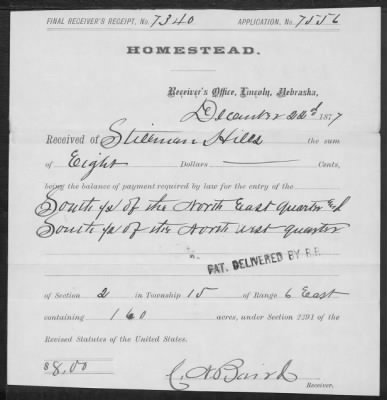 FINAL RECEIVER'S RECEIPT, No. 7340 APPLICATION, No. 7556
HOMESTEAD.
Receiver's Office, Lincoln, Nebraska,
December 22d 1877
Received of Stillman Hills the sum
of Eight Dollars Cents,
being the balance of payment required by law for the entry of the
South ½ of the North East quarter and
South ½ of the North West quarter
PAT. DELIVERED BY R.R.
of Section 2 in Township 15 of Range 6 East
containing 160 acres, under Section 2291 of the
Revised Statutes of the United States.
$8.00
C A Baird
Receiver.